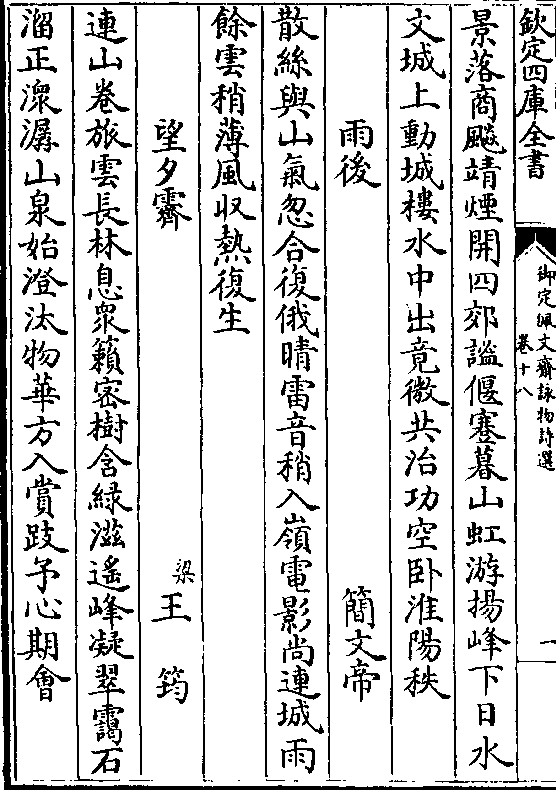 欽定四庫全書
御定佩文齋詠物詩選
卷十八
一
景落商飈靖煙開四郊謐偃蹇暮山虹游揚峰下日水
文城上動城樓水中出竟微共治功空卧淮陽秩
雨後 簡文帝
散絲與山氣忽合復俄晴雷音稍入嶺電影尚連城雨
餘雲稍薄風収熱復生
望夕霽 梁王筠
連山卷旅雲長林息衆籟密樹含綠滋遥峰凝翠靄石
溜正潨潺山泉始澄汰物華方入賞跂予心期會